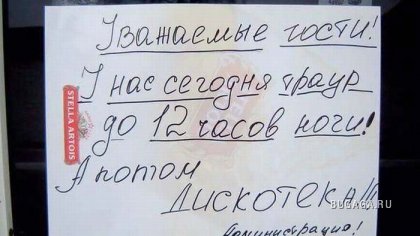 Уважаемые гости!
У нас сегодня траур
до 12 часов ночи!
А потом
Дискотека!!!
Администрация!
STELLA ARTOIS
BUGAGA.RU